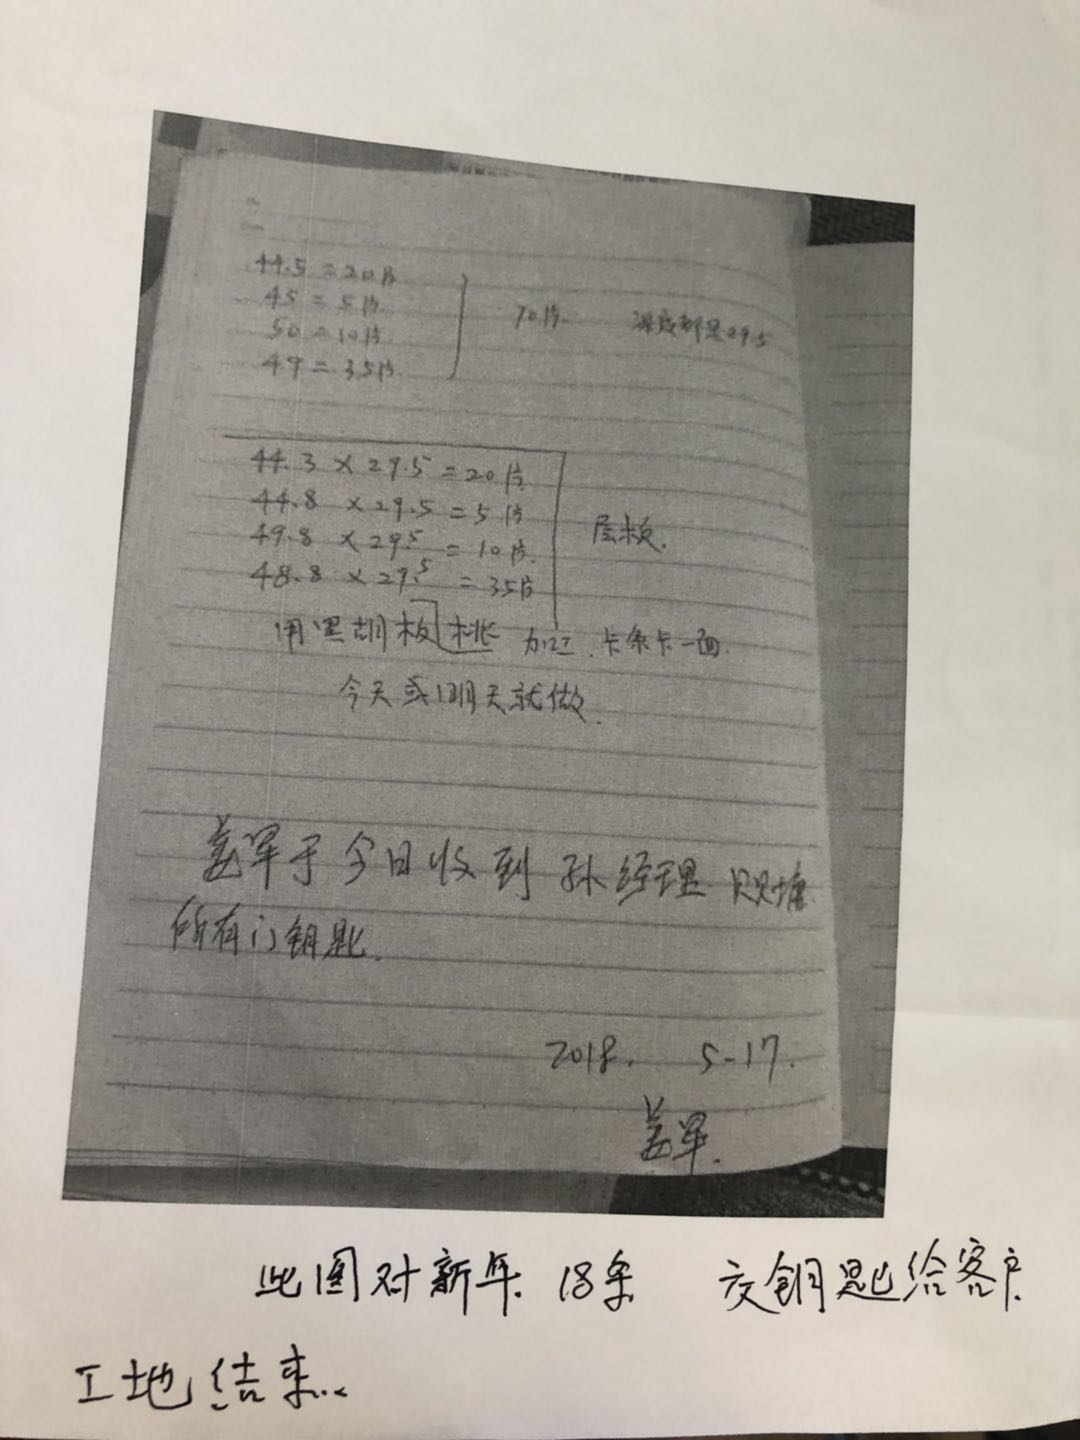 44.5 = 20片
45 = 5片
50 = 10片
49 = 35片
70片 深度都是29.5
44.3 × 29.5 = 20片
44.8 × 29.5 = 5片
49.8 × 29.5 = 10片
48.8 × 29.5 = 35片
层板.
用黑胡板桃 加工.卡条卡一面.
今天或明天就做.
于今日收到孙经理
所有门钥匙.
2018. 5-17.
此图对新年. 18条 交钥匙给客户
工地结束..